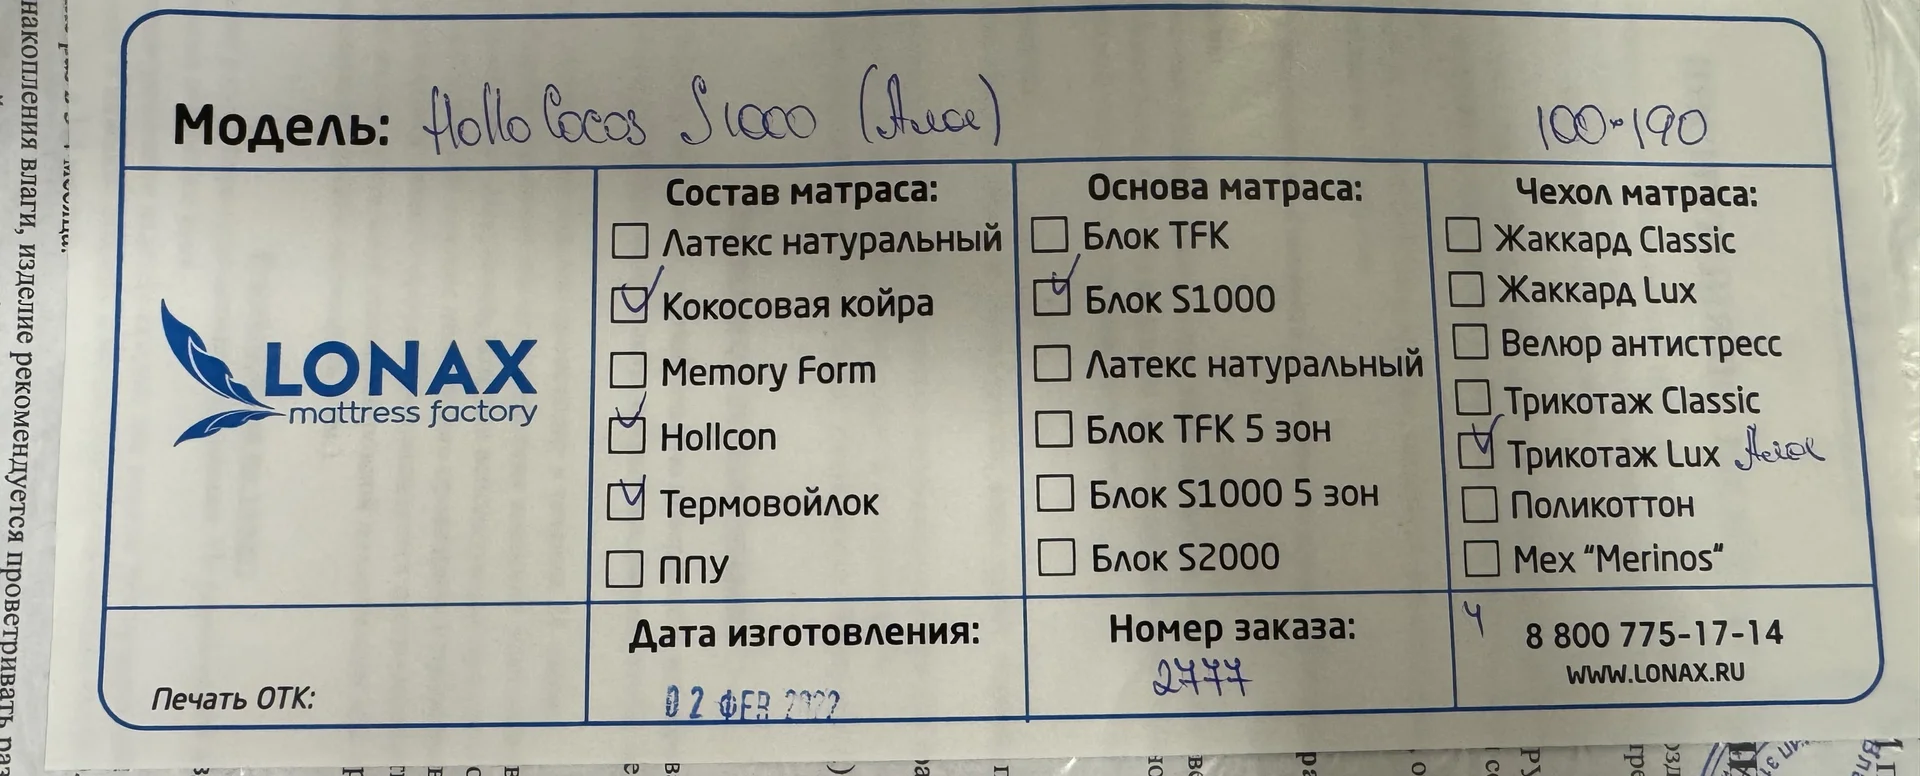 Модель: Hollo Cocos S1000 (Алоэ) 100*190
LONAX
mattress factory
Состав матраса:
Латекс натуральный
Кокосовая койра
Memory Form
Hollcon
Термовойлок
ППУ
Основа матраса:
Блок TFK
Блок S1000
Латекс натуральный
Блок TFK 5 зон
Блок S1000 5 зон
Блок S2000
Чехол матраса:
Жаккард Classic
Жаккард Lux
Велюр антистресс
Трикотаж Classic
Трикотаж Lux Алоэ
Поликоттон
Мех “Merinos“
Печать ОТК:
Дата изготовления:
02 ФЕВ 2022
Номер заказа:
2777
4
8 800 775-17-14
WWW.LONAX.RU
накопления влаги, изделие рекомендуется проветривать раз